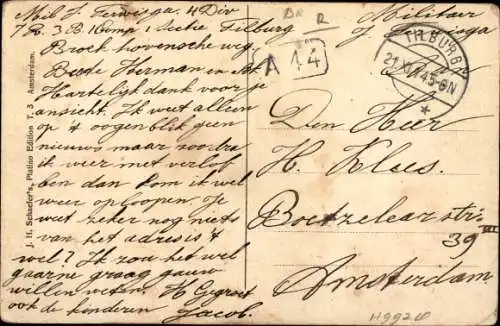 Mil J. Terwisga. 4 Div
7 R. 3 B. 1 Comp 1 Sectie Tilburg
Broek hovensche weg,
Beste Herman en M.
Hartelijk dank voor je
ansicht. Ik weet alleen
op 't oogenblik geen
nieuws maar zoodra
ik weer met verlof
ben dan kom ik wel
weer op loopen. Je
weet zeker nog niets
van het adres is 't
wel? Ik zou het wel
gaarne graag gauw
willen weten. H Gegroet
ook de kinderen
Jacob.
J. H. Schaefer's, Platino Edition T. 3 Amsterdam.
R
A 14
Militair
J. Terwisga
TILBURG
21 XI 14 5-6N
Den Heer
H. Klees.
Boetzelaerstr.
39 III
Amsterdam.